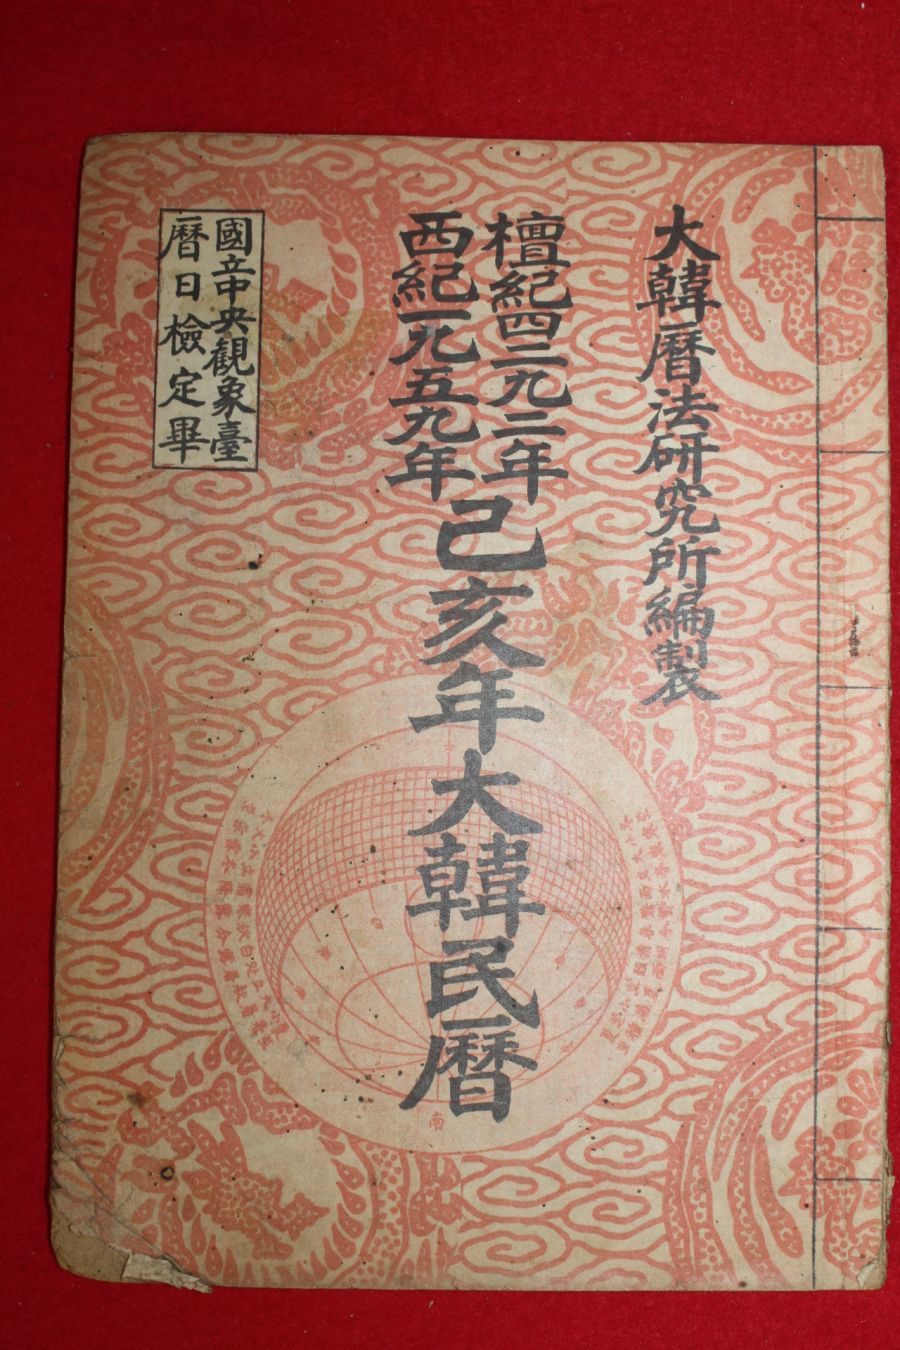 大韓曆法研究所編製
檀紀四二九二年
西紀一九五九年
己亥年大韓民曆
國立中央觀象臺
曆日檢定畢
南